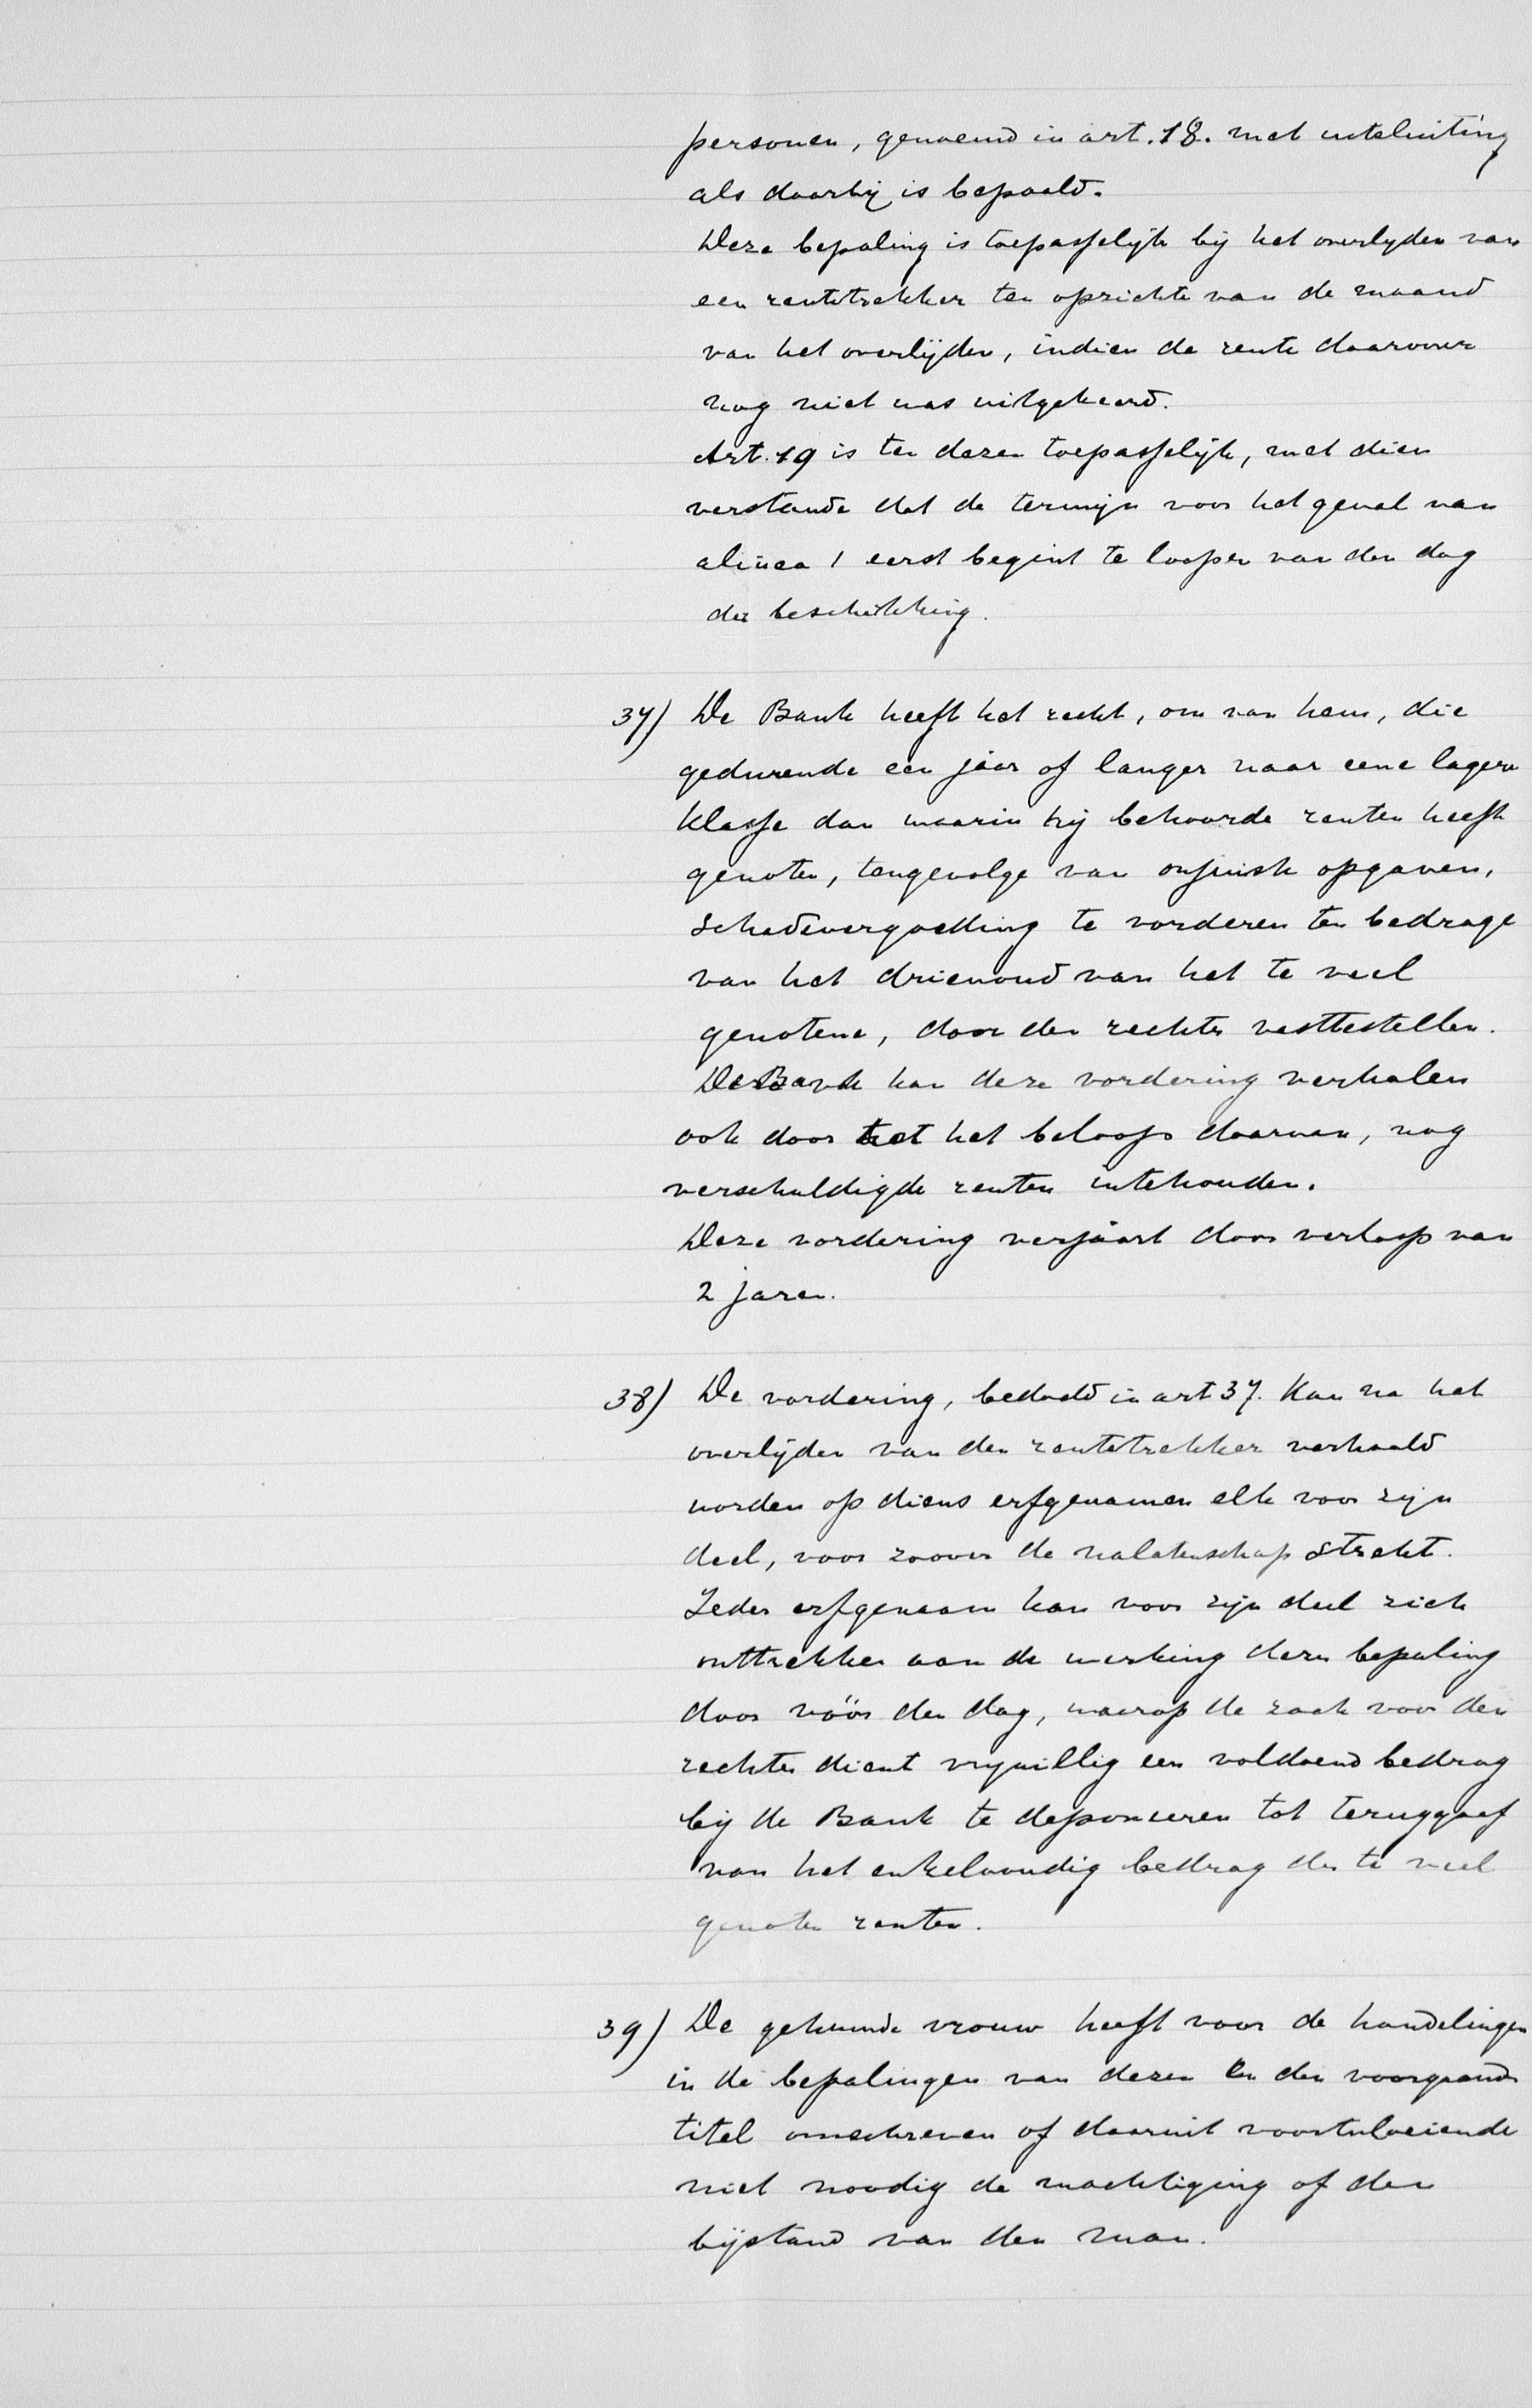 personen, genoemd in art. 18. met uitsluiting
als daarbij is bepaald.
Deze bepaling is toepasselijk bij het overlijden van
een rentetrekker ten opzichte van de maand
van het overlijden, indien de rente daarover
nog niet was uitgekeerd.
Art. 19 is ten dezen toepasselijk, met dien
verstande dat de termijn voor het geval van
alinea 1 eerst begint te loopen van den dag
der beschikking.
37) De Bank heeft het recht, om van hem, die
gedurende een jaar of langer naar eene lagere
klasse dan waarin hij behoorde renten heeft
genoten, tengevolge van onjuiste opgaven,
schadevergoeding te vorderen ten bedrage
van het drievoud van het te veel
genotene, door den rechter vasttestellen.
De Bank kan deze vordering verhalen
ook door tot het beloop daarvan, nog
verschuldigde renten intehouden.
Deze vordering verjaart door verloop van
2 jaren.
38) De vordering, bedoeld in art 37. kan na het
overlijden van den rentetrekker verhaald
worden op diens erfgenamen elk voor zijn
deel, voor zoover de nalatenschap strekt.
Ieder erfgenaam kan voor zijn deel zich
onttrekken aan de werking dezer bepaling
door vóór den dag, waarop de zaak voor den
rechter dient vrijwillig een voldoend bedrag
bij de Bank te deponeeren tot teruggaaf
van het enkelvoudig bedrag der te veel
genoten renten.
39) De gehuwde vrouw heeft voor de handelingen
in de bepalingen van dezen en den voorgaanden
titel omschreven of daaruit voortvloeiende
niet noodig de machtiging of den
bijstand van den man.